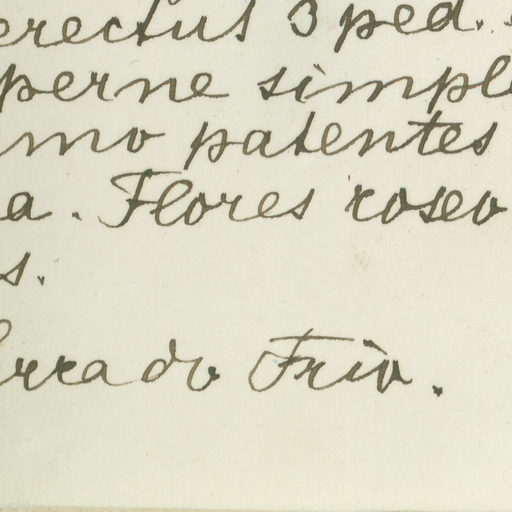 erectus 3 ped.
perne simple
mo patentes
a. Flores roseo
s.
Serra do Frio.